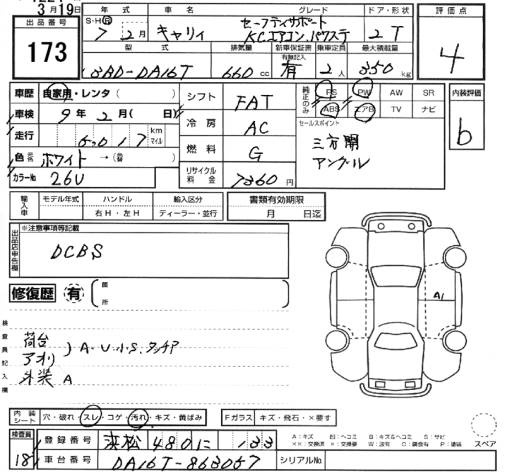 3月19日
出品番号
173
年式 車名 グレード ドア・形状
S・H・R 7年 2月 キャリィ セーフティサポート KCエアコンパワステ 2 T
型式 排気量 新車保証書 乗車定員 最大積載量
有無記入
3BD-DA16T 660cc 有 2人 350kg
評価点
4
車歴 自家用・レンタ( )
車検 9年 2月( 日)
走行 km マイル
色 ホワイト →(替)
カラーNo 26U
シフト FAT
冷房 AC
燃料 G
リサイクル料金 7360円
純正のみ
PS PW AW SR
ABS エアB TV ナビ
セールスポイント
三方開
アングル
内装評価
b
輸入車
モデル年式 ハンドル 輸入区分
右H・左H ディーラー・並行
書類有効期限
月 日迄
出品店申告欄
※注意事項等記載
DCBS
修復歴 有 箇所
A1
検査員記入欄
荷台
アオリ } A・U・S・タッチP
外装 A
内装シート 穴・破れ・スレ・コゲ・汚れ・キズ・黄ばみ
Fガラス キズ・飛石・×要す
検査員
18
登録番号 浜松 480 に 133
車台番号 DA16T-863057
シリアルNo
A:キズ E:エクボ U:ヘコミ B:キズ&ヘコミ S:サビ
スペア